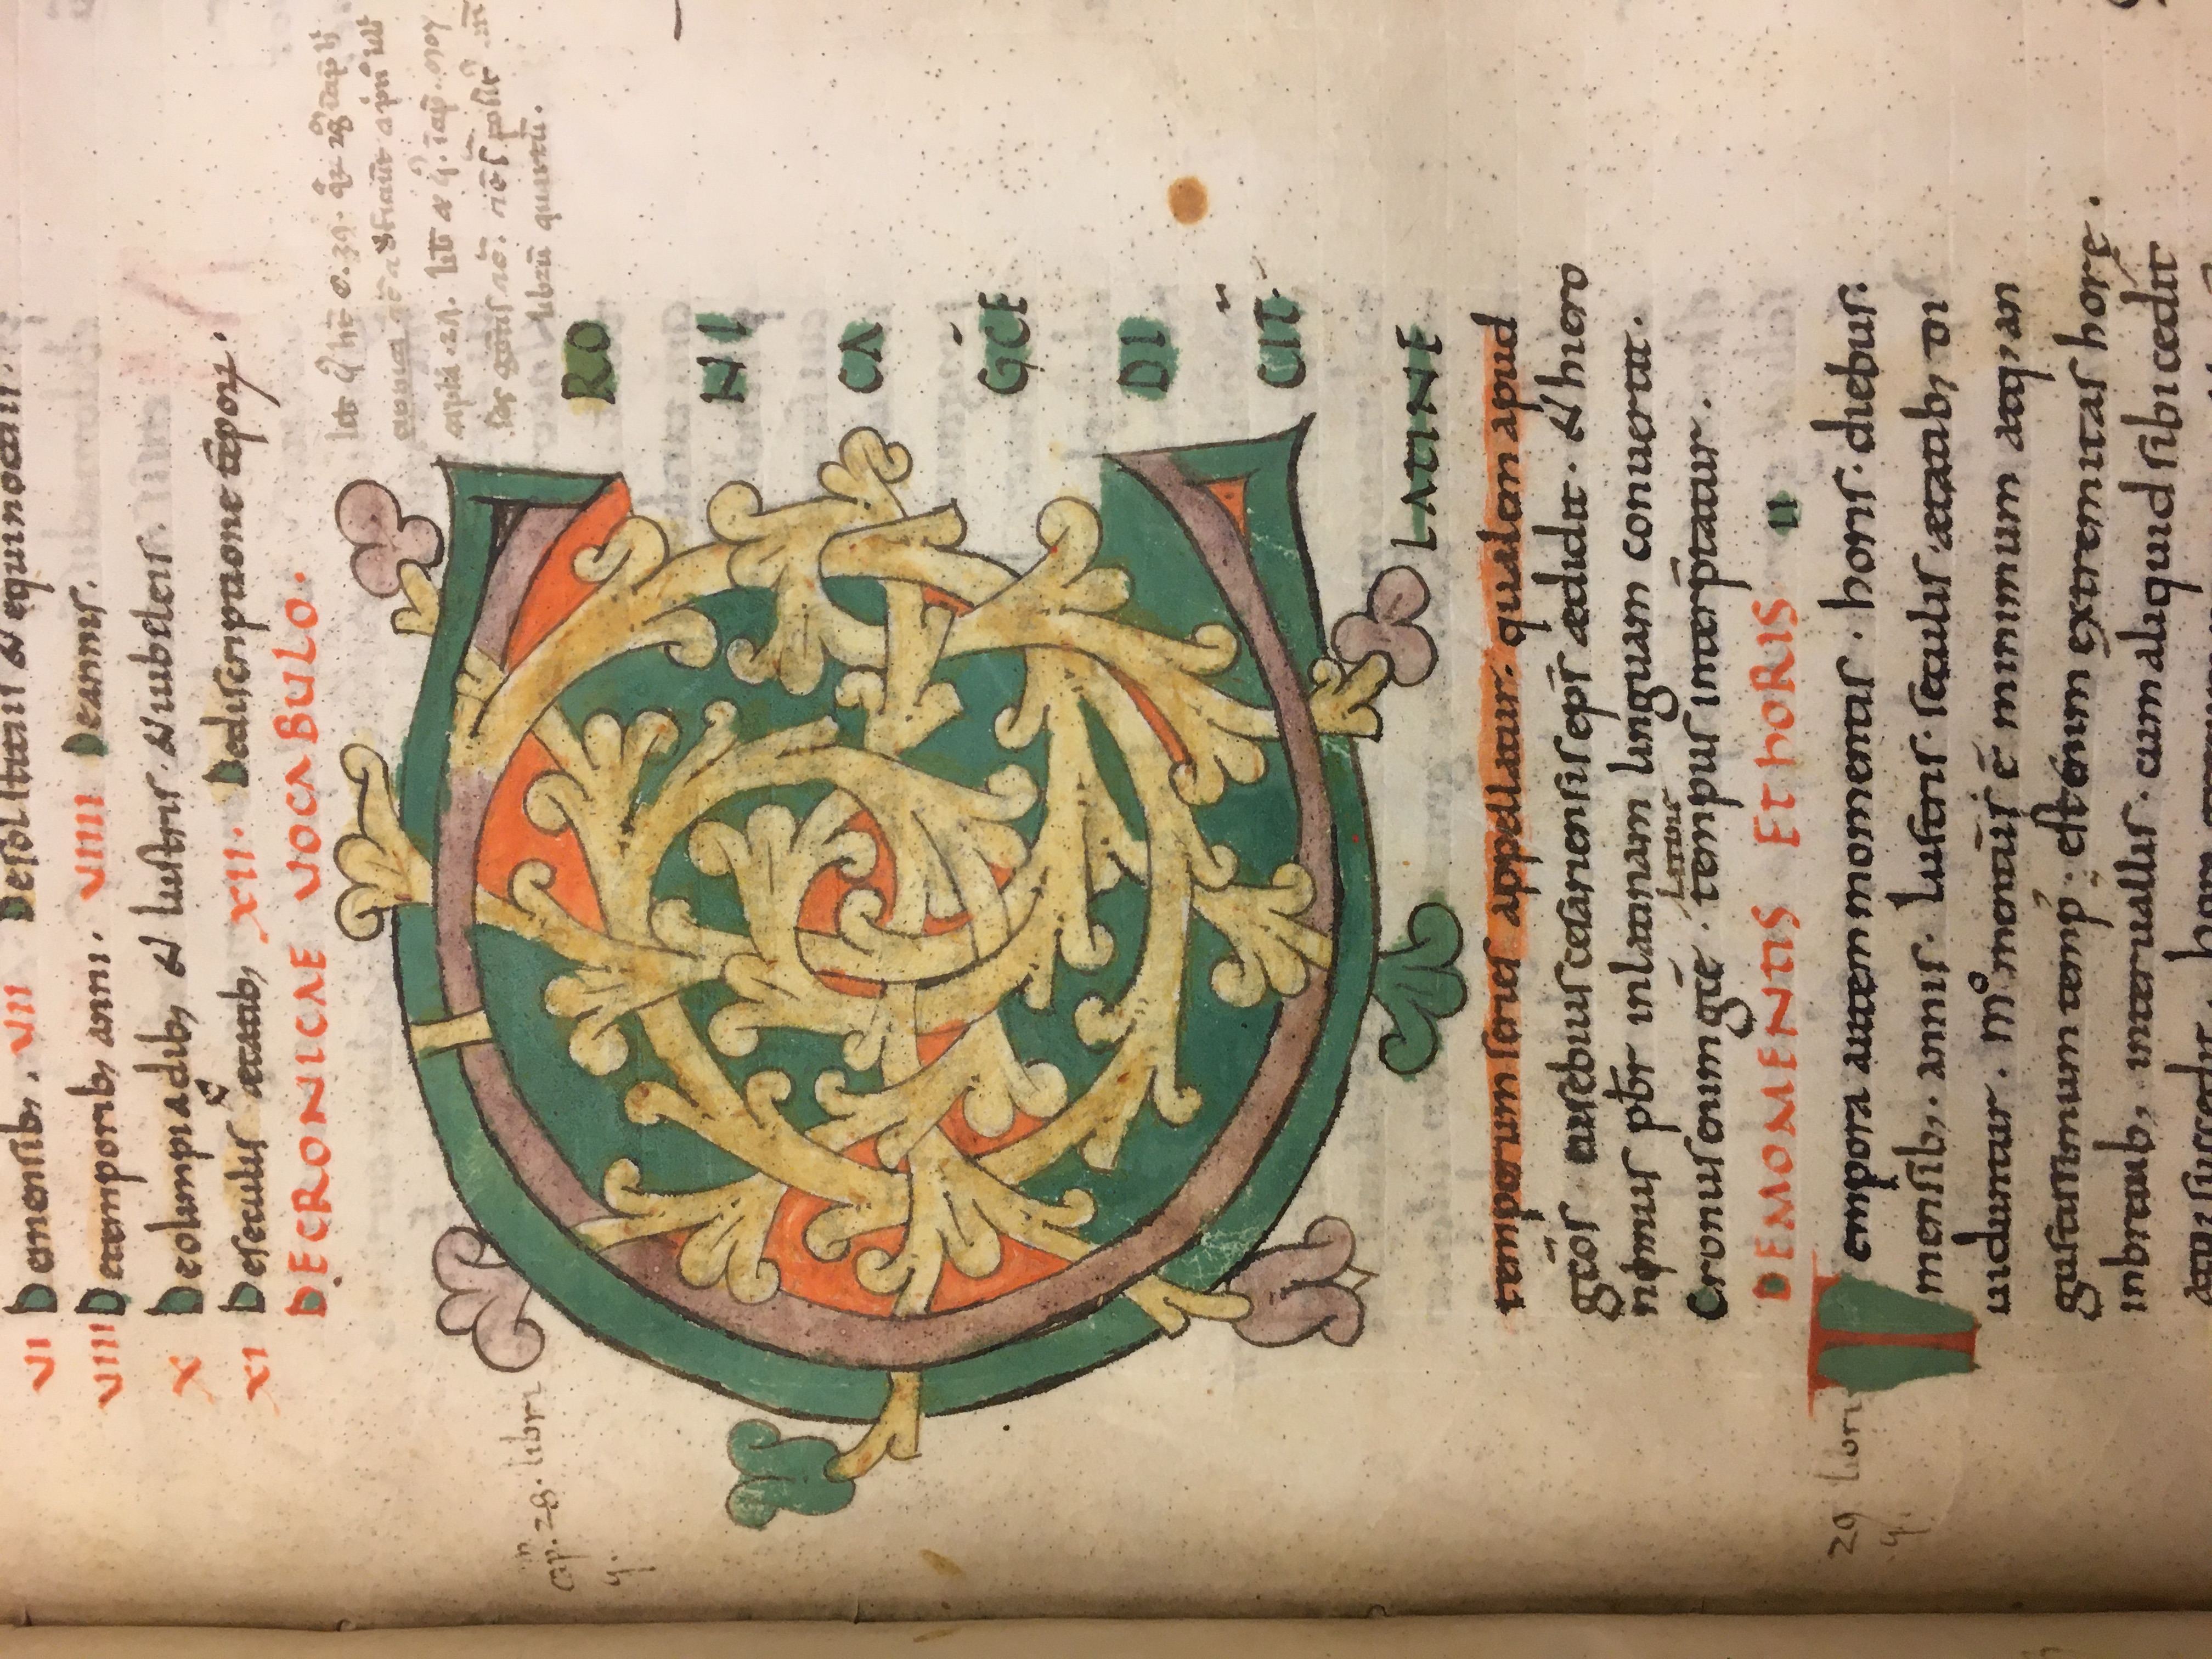 VI Demensib; . VII Desolstitiis & equinoctiis.
VIII Detemporib; anni . VIIII Deannis.
X Deolumpiadib; & lustris & iubileis.
XI Deseculis & etatib; XII. Dediscriptione tēpoꝝ.
DECRONICAE VOCABULO.
cap. 28. libri
5.
librū quintū.
C
RO
NI
CA
GC̄E
DI
CIT̄.
LATINE
temporum series appellatur. qualem apud
gc̄os eusebius cesariensis ep̄s ædidit. & hiero
nimus pb̄r inlatinam linguam conuertit.
Cronus enim gc̄e . latine tempus interp̄tatur.
DEMOMENTIS ET HORIS II
29 libri
5.
Tempora autem momentis . horis . diebus.
mensib; . annis . lustris . seculis . ætatib; di
uiduntur . Momentū ē minimum atq; an
gustissimum temp̄ . est enim extremitas horę .
inbreuib; interuallis . cum aliquid sibi cedit